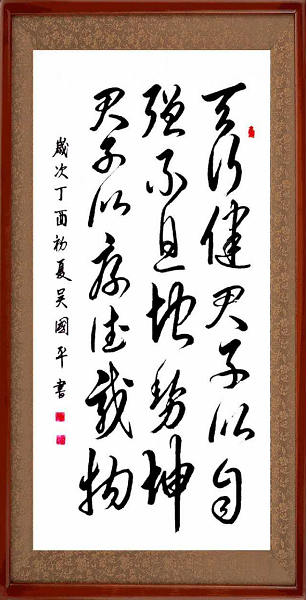 天行健君子以自
强不息地势坤
君子以厚德載物
歲次丁酉初夏吴國平書